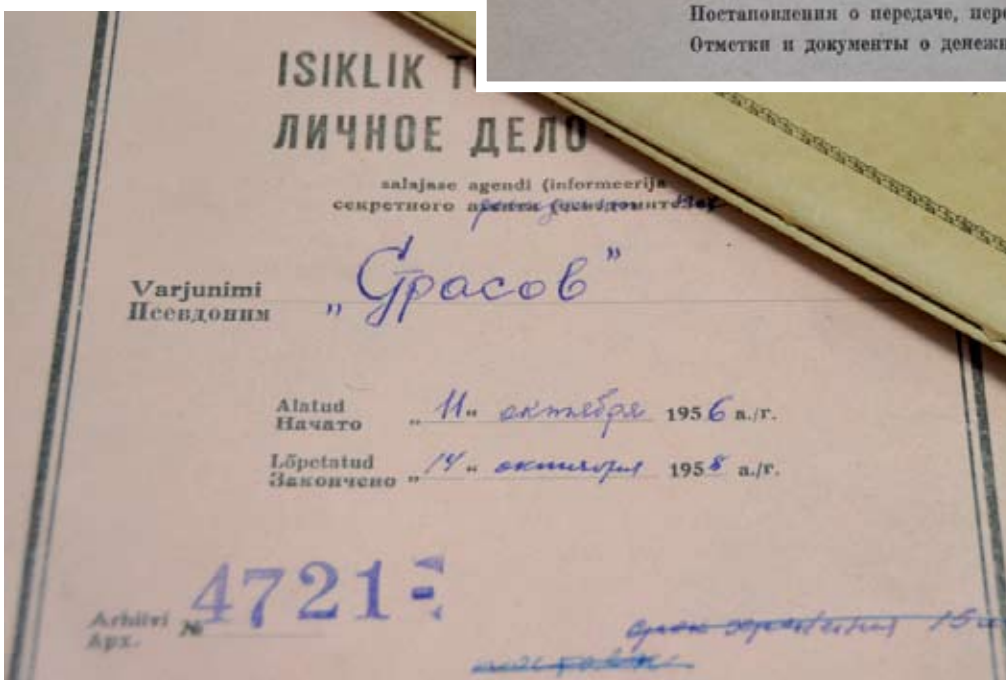 Постановления о передаче, пере
Отметки и документы о денежн
ISIKLIK T
ЛИЧНОЕ ДЕЛО
salajase agendi (informeerija
секретного агента (осведомителя)
Varjunimi
Псевдоним „Страсов"
Alatud
Начато „11" октября 1956 a./г.
Lõpetatud
Закончено „14" октября 1958 a./г.
Arhiivi
Арх. № 4721
срок хранения 15